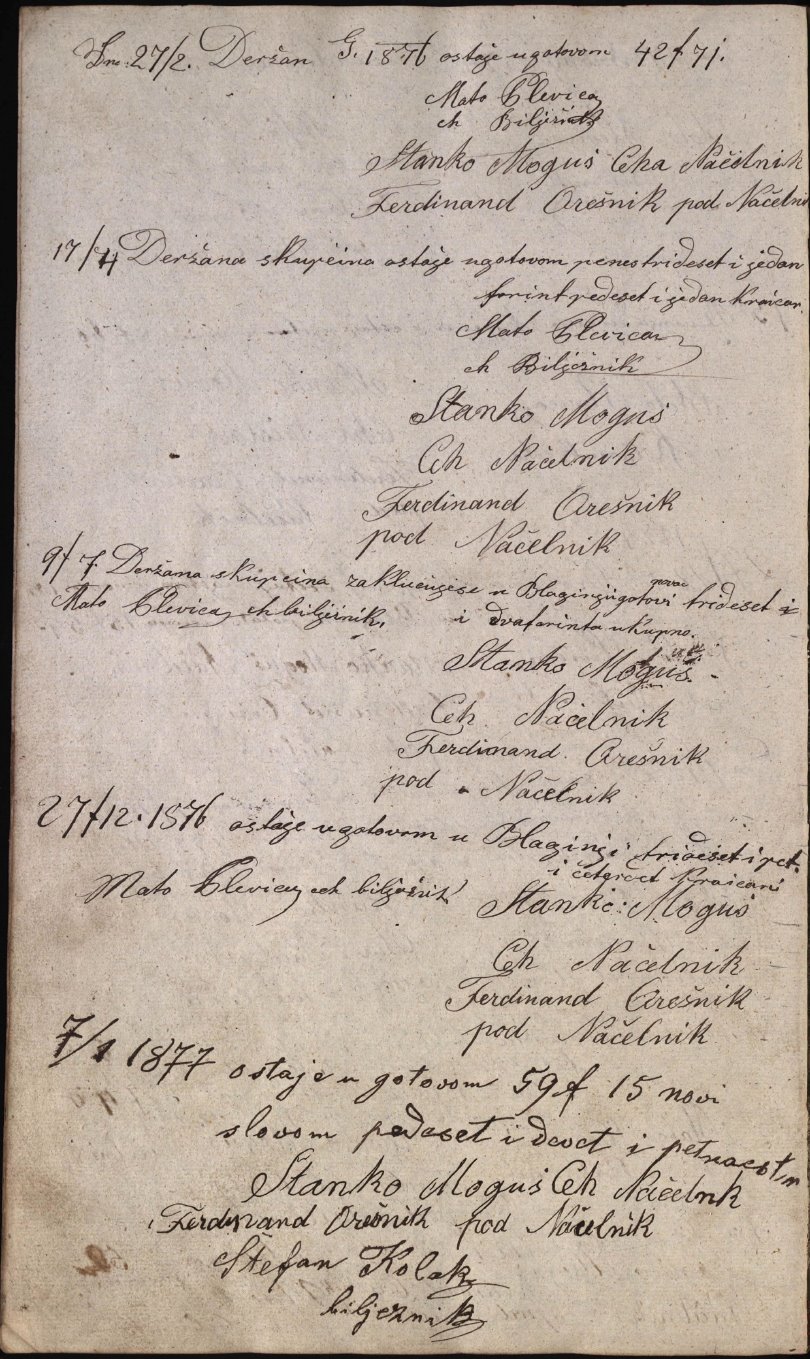 Dne 27/2. Deržan G. 1876 ostaje ugotovom 42f 71.
Mato Plevica
ch Bilježnik
Stanko Moguš Ceha Načelnik
Ferdinand Orešnik pod Načelni
17/4 Deržana skupcina ostaje ugotovom penes trideset i jedan
forint pedeset i jedan Kraicar.
Mato Plevica
ch Bilježnik
Stanko Moguš
Ceh Načelnik
Ferdinand Orešnik
pod Načelnik
9/7. Deržana skupcina zakluciuse u Blaginji gotovi novac trideset i
Mato Plevica ch biljžnik, i dvaforinta ukupno.
Stanko Moguš.
Ceh Načelnik
Ferdinand Orešnik
pod Načelnik
27/12.1876 ostaje ugotovom u Blaginji trideset i pet
i četerdeset Kraicari
Mato Plevica ch biljžnik Stanko Moguš
Ceh Načelnik
Ferdinand Orešnik
pod Načelnik
7/1 1877 ostaje u gotovom 59f 15 novi
slovom pedeset i devet i petnaest
Stanko Moguš Ceh Načelnk
Ferdinand Orešnik pod Načelnik
Štefan Kolak
bilježnik